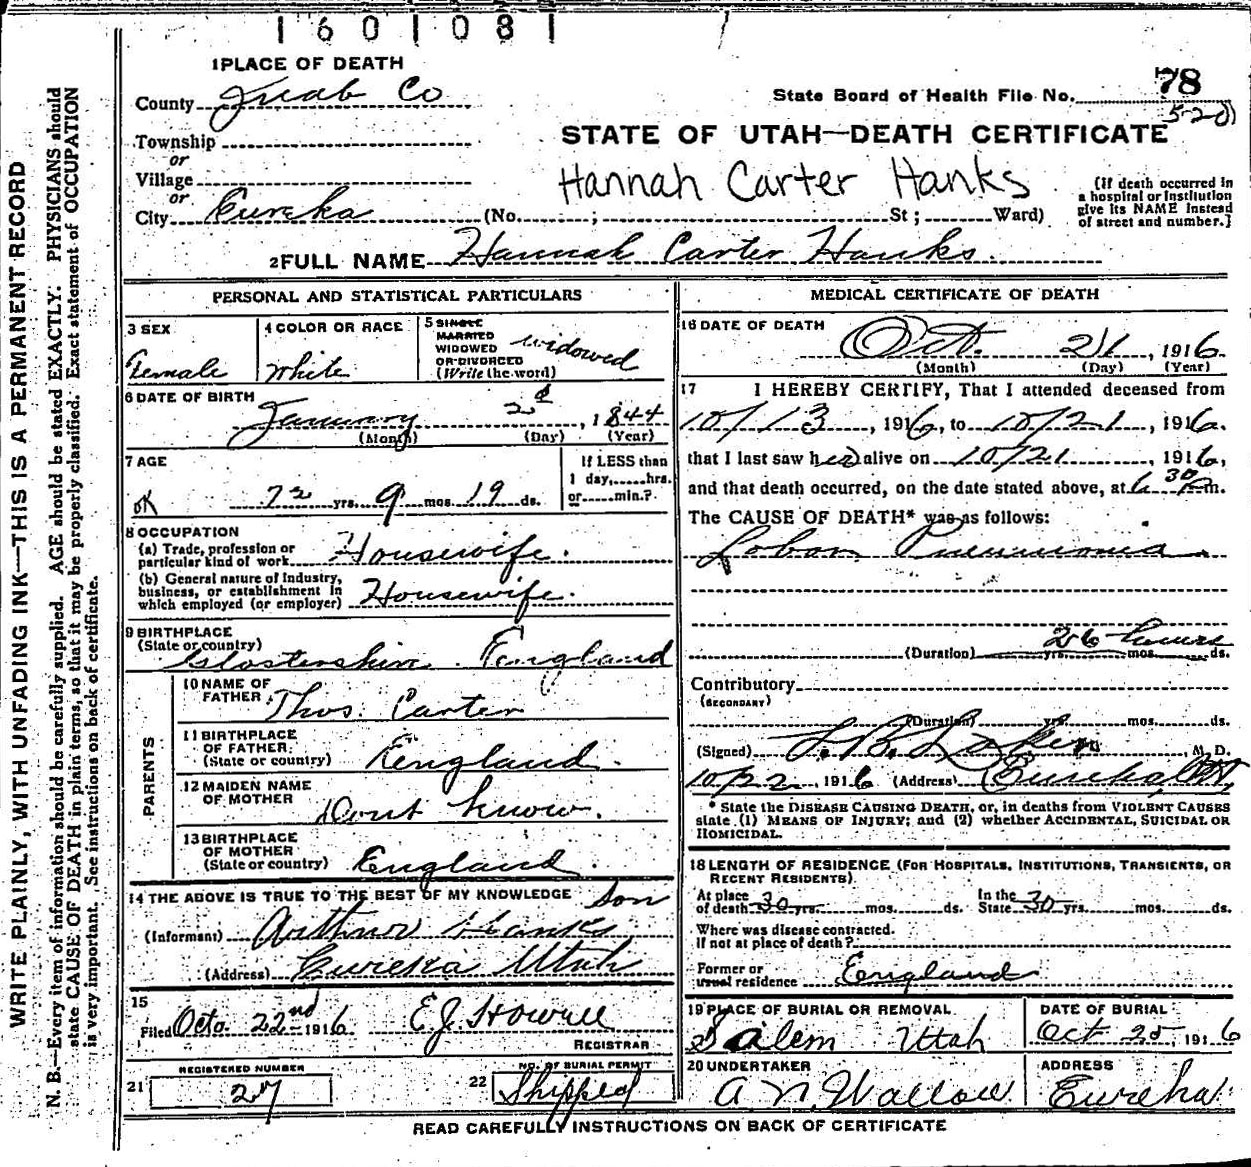 1601081
1 PLACE OF DEATH
County Juab Co
State Board of Health File No. 78
5-20
Township
or
STATE OF UTAH—DEATH CERTIFICATE
Village
or
Hannah Carter Hanks
(If death occurred in a hospital or institution give its NAME instead of street and number.]
City Eureka (No. ; St ; Ward)
2 FULL NAME Hannah Carter Hanks.
PERSONAL AND STATISTICAL PARTICULARS
3 SEX
Female
4 COLOR OR RACE
White
5 SINGLE
MARRIED
WIDOWED
OR DIVORCED
(Write the word)
widowed
6 DATE OF BIRTH
January 2d, 1844
(Month) (Day) (Year)
7 AGE
If LESS than
1 day, hrs.
or min.?
OK 72 yrs. 9 mos. 19 ds.
8 OCCUPATION
(a) Trade, profession or
particular kind of work Housewife.
(b) General nature of Industry,
business, or establishment in
which employed (or employer) Housewife.
9 BIRTHPLACE
(State or country)
Glostershire England
PARENTS
10 NAME OF
FATHER Thos. Carter
11 BIRTHPLACE
OF FATHER
(State or country) England.
12 MAIDEN NAME
OF MOTHER Dont know.
13 BIRTHPLACE
OF MOTHER
(State or country) England.
14 THE ABOVE IS TRUE TO THE BEST OF MY KNOWLEDGE Son
(Informant) Arthur Hanks
(Address) Eureka Utah
15
Filed Octo. 22nd 1916 E J Howell
REGISTRAR
REGISTERED NUMBER
21 27
NO. OF BURIAL PERMIT
22 Shipped
MEDICAL CERTIFICATE OF DEATH
16 DATE OF DEATH
Oct. 21, 1916.
(Month) (Day) (Year)
17 I HEREBY CERTIFY, That I attended deceased from
10/13, 1916, to 10/21, 1916.
that I last saw her alive on 10/21, 1916,
and that death occurred, on the date stated above, at 6 30 P m.
The CAUSE OF DEATH* was as follows:
Lobar Pneumonia
26 hours
(Duration) yrs. mos. ds.
Contributory
(SECONDARY)
(Duration) yrs. mos. ds.
(Signed) M. D.
10/22, 1916 (Address) Eureka, Ut,
* State the DISEASE CAUSING DEATH, or, in deaths from VIOLENT CAUSES
state (1) MEANS OF INJURY; and (2) whether ACCIDENTAL, SUICIDAL OR
HOMICIDAL.
18 LENGTH OF RESIDENCE (FOR HOSPITALS, INSTITUTIONS, TRANSIENTS, OR
RECENT RESIDENTS).
At place In the
of death 30 yrs. mos. ds. State 30 yrs. mos. ds.
Where was disease contracted.
If not at place of death?
Former or
usual residence England
19 PLACE OF BURIAL OR REMOVAL
Salem Utah
DATE OF BURIAL
Oct 25, 1916
20 UNDERTAKER
A. N. Wallace
ADDRESS
Eureka
READ CAREFULLY INSTRUCTIONS ON BACK OF CERTIFICATE
WRITE PLAINLY, WITH UNFADING INK—THIS IS A PERMANENT RECORD
N. B.—Every item of information should be carefully supplied. AGE should be stated EXACTLY. PHYSICIANS should
state CAUSE OF DEATH in plain terms, so that it may be properly classified. Exact statement of OCCUPATION
is very important. See instructions on back of certificate.